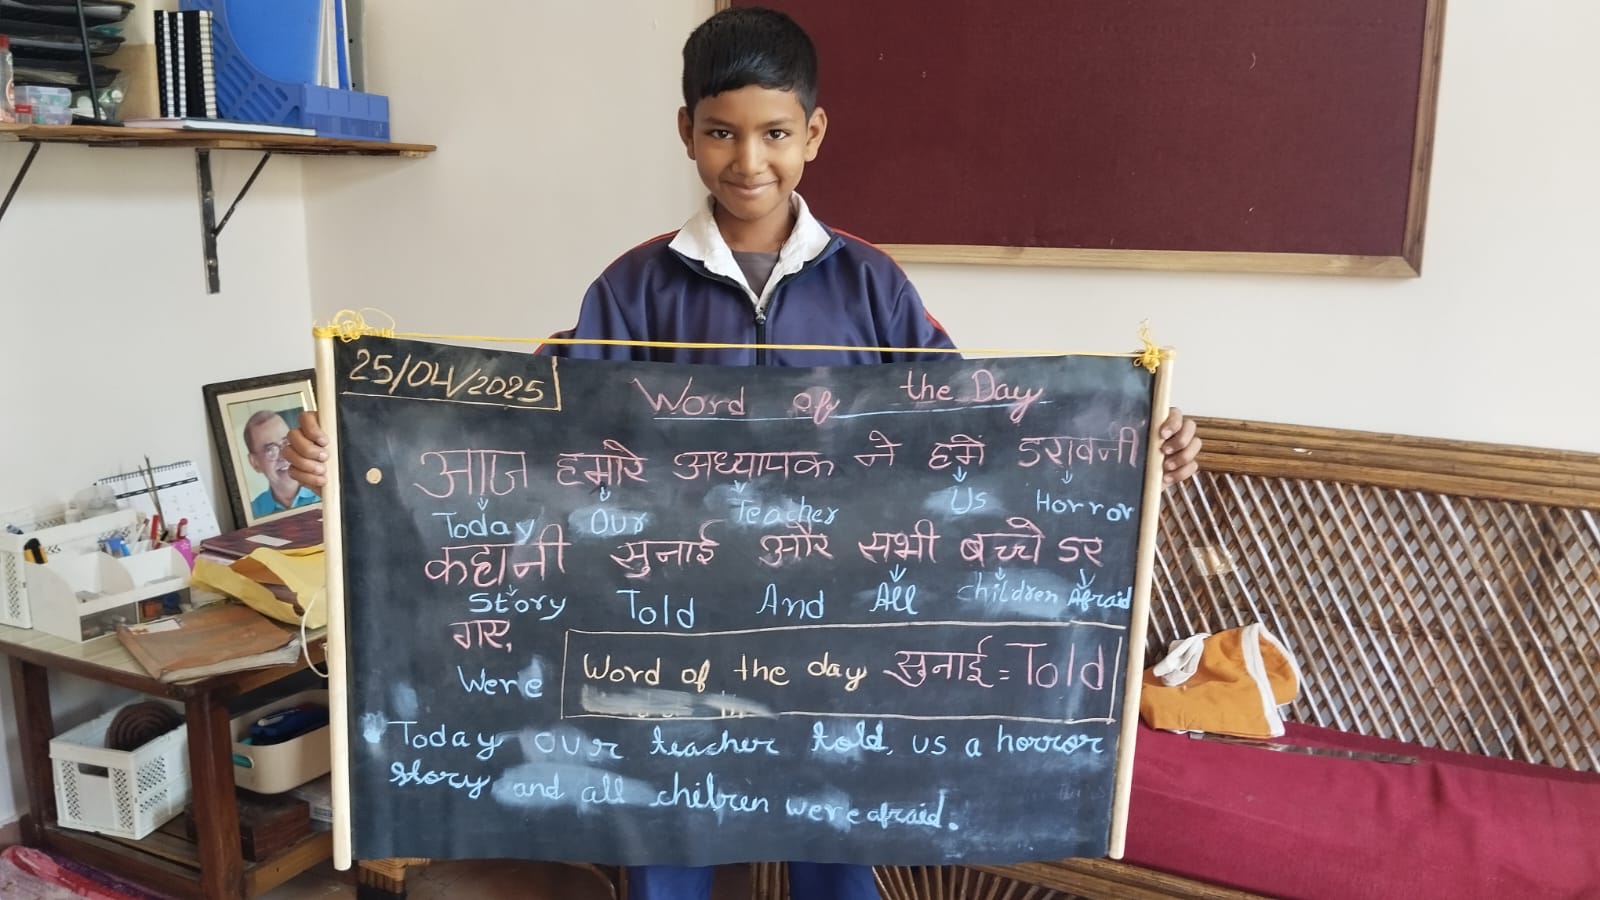 25/04/2025
Word of the Day
आज हमारे अध्यापक ने हमें डरावनी
Today Our Teacher Us Horror
कहानी सुनाई और सभी बच्चे डर
Story Told And All children Afraid
गए,
Were
Word of the day सुनाई = Told
Today our teacher told, us a horror
story and all children were afraid.